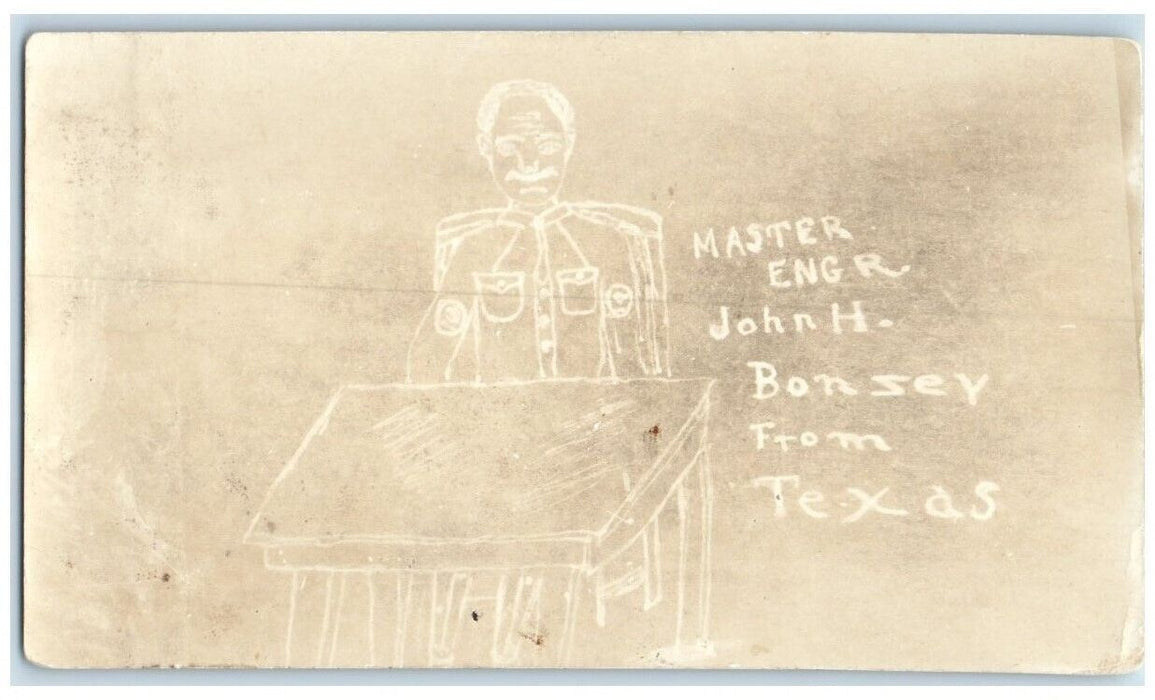 MASTER
ENGR
John H.
Bonsey
From
Texas